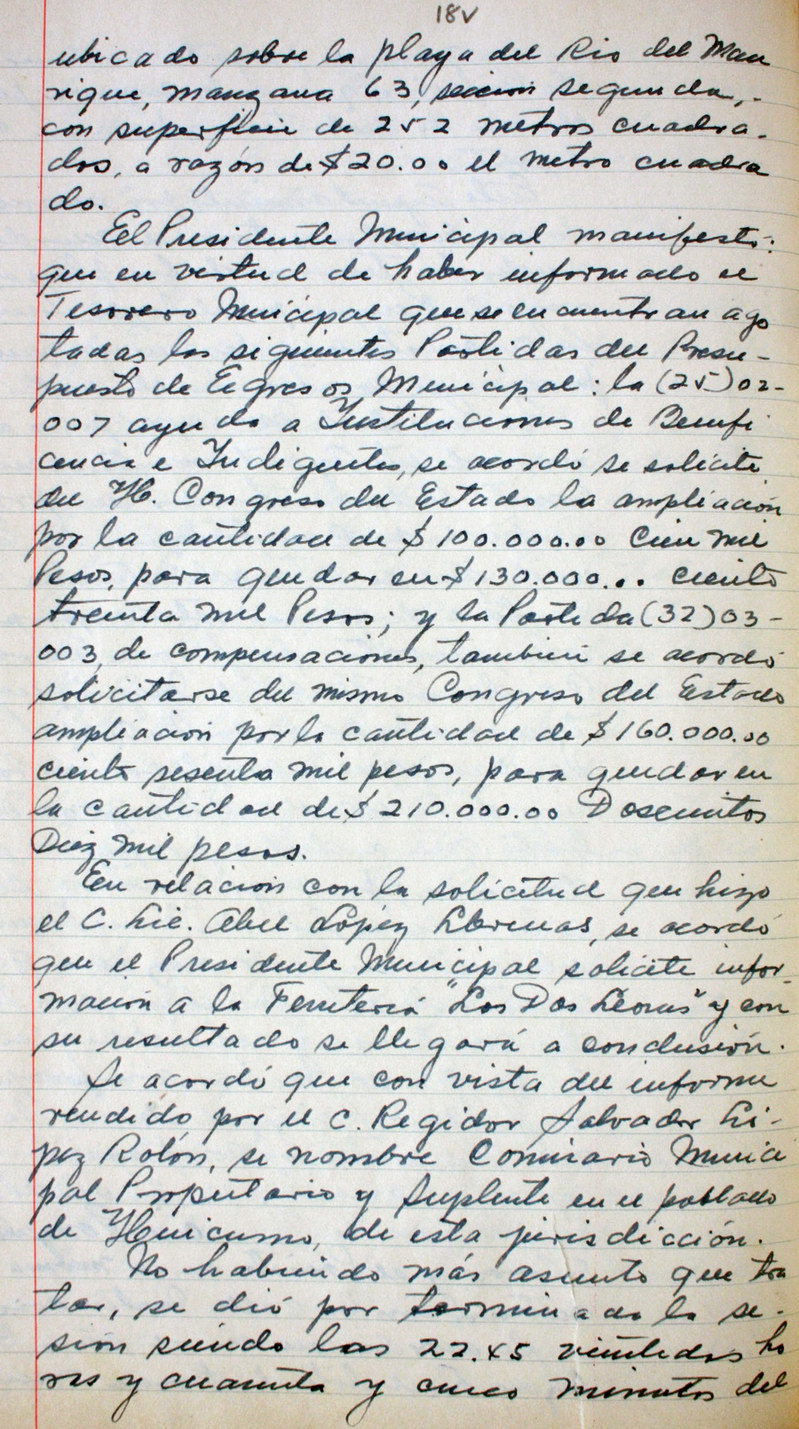 18v
ubicado sobre la playa del Rio del Man
rique, manzana 63, seccion segunda,
con superficie de 252 metros cuadra-
dos, a razón de $20.00 el metro cuadra
do.
El Presidente Municipal manifestó:
que en virtud de haber informado el
Tesorero Municipal que se encuentran ago
tadas las siguientes Partidas del Presu-
puesto de Egresos Municipal: la (25)02-
007 ayuda a Instituciones de Benefi
cencia e Indigentes, se acordó se solicite
del H. Congreso del Estado la ampliación
por la cantidad de $100.000.00 Cien mil
Pesos, para quedar en $130.000.. ciento
treinta mil Pesos; y la Partida (32)03-
003, de compensaciones, también se acordó
solicitarse del mismo Congreso del Estado
ampliación por la cantidad de $160.000.00
ciento sesenta mil pesos, para quedar en
la cantidad de $210.000.00 Doscientos
Diez mil pesos.
En relación con la solicitud que hizo
el C. Lic. Abel López Llerenas, se acordó
que el Presidente Municipal solicite infor-
mación a la Ferretería "Los Dos Leones" y con
su resultado se llegará a conclusión.
Se acordó que con vista del informe
rendido por el C. Regidor Salvador Ló-
pez Rolón, se nombre Comisario Munici
pal Propietario y Suplente en el poblado
de, de esta jurisdicción.
No habiendo más asunto que tra
tar, se dió por terminada la se-
sión siendo las 22.45 veintidos ho
ras y cuarenta y cinco minutos del